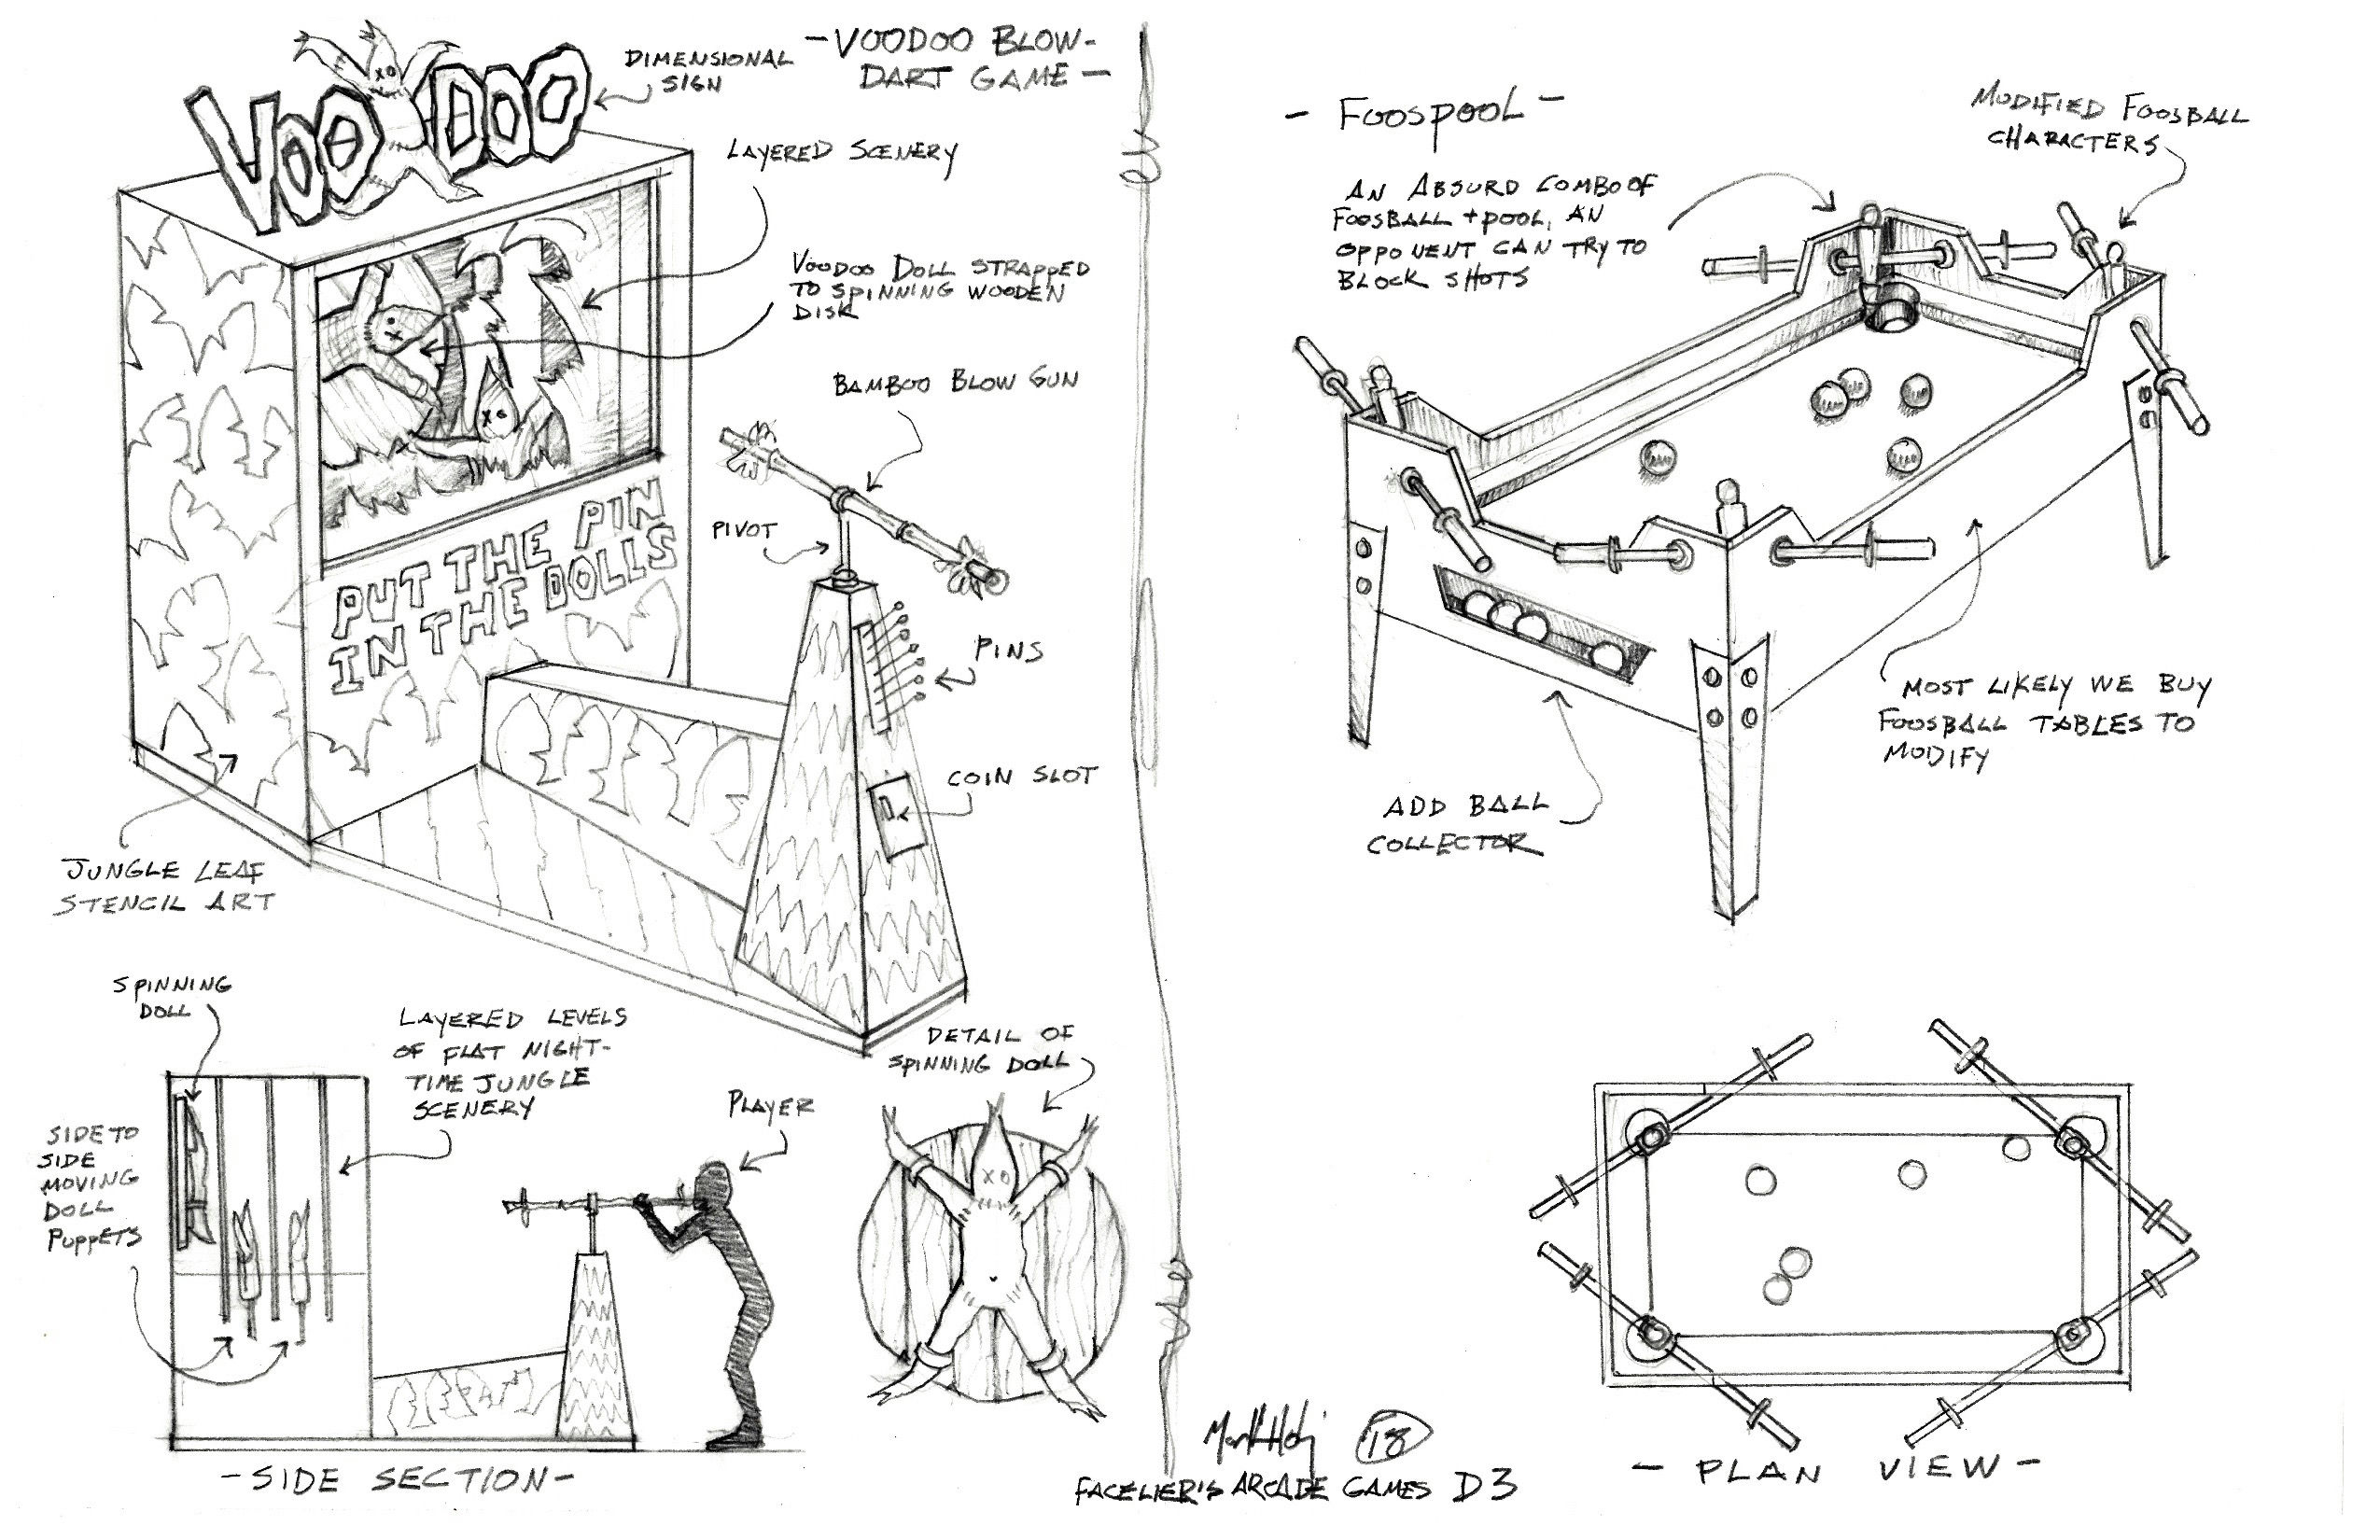 -VOODOO BLOW-
DART GAME-
VOODOO
DIMENSIONAL
SIGN
LAYERED SCENERY
VOODOO DOLL STRAPPED
TO SPINNING WOODEN
DISK
BAMBOO BLOW GUN
PIVOT
PUT THE PIN
IN THE DOLLS
PINS
COIN SLOT
JUNGLE LEAF
STENCIL ART
SPINNING
DOLL
LAYERED LEVELS
OF FLAT NIGHT-
TIME JUNGLE
SCENERY
SIDE TO
SIDE
MOVING
DOLL
PUPPETS
PLAYER
DETAIL OF
SPINNING DOLL
-SIDE SECTION-
- FOOSPOOL -
AN ABSURD COMBO OF
FOOSBALL + POOL, AN
OPPONENT CAN TRY TO
BLOCK SHOTS
MODIFIED FOOSBALL
CHARACTERS
MOST LIKELY WE BUY
FOOSBALL TABLES TO
MODIFY
ADD BALL
COLLECTOR
- PLAN VIEW -
18
FACELIER'S ARCADE GAMES D3